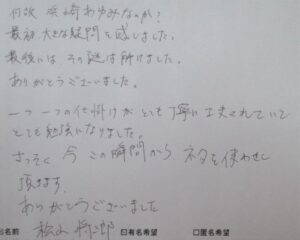 何故 浜崎あゆみなのか?
最初、大きな疑問を感じました。
最後には、その謎は解けました。
ありがとうございました。
一つ一つの仕掛けが とても丁寧に工夫されていて
とても勉強になりました。
さっそく 今 この瞬間から ネタを使わせて
頂ます。
ありがとうございました
お名前 □有名希望 □匿名希望